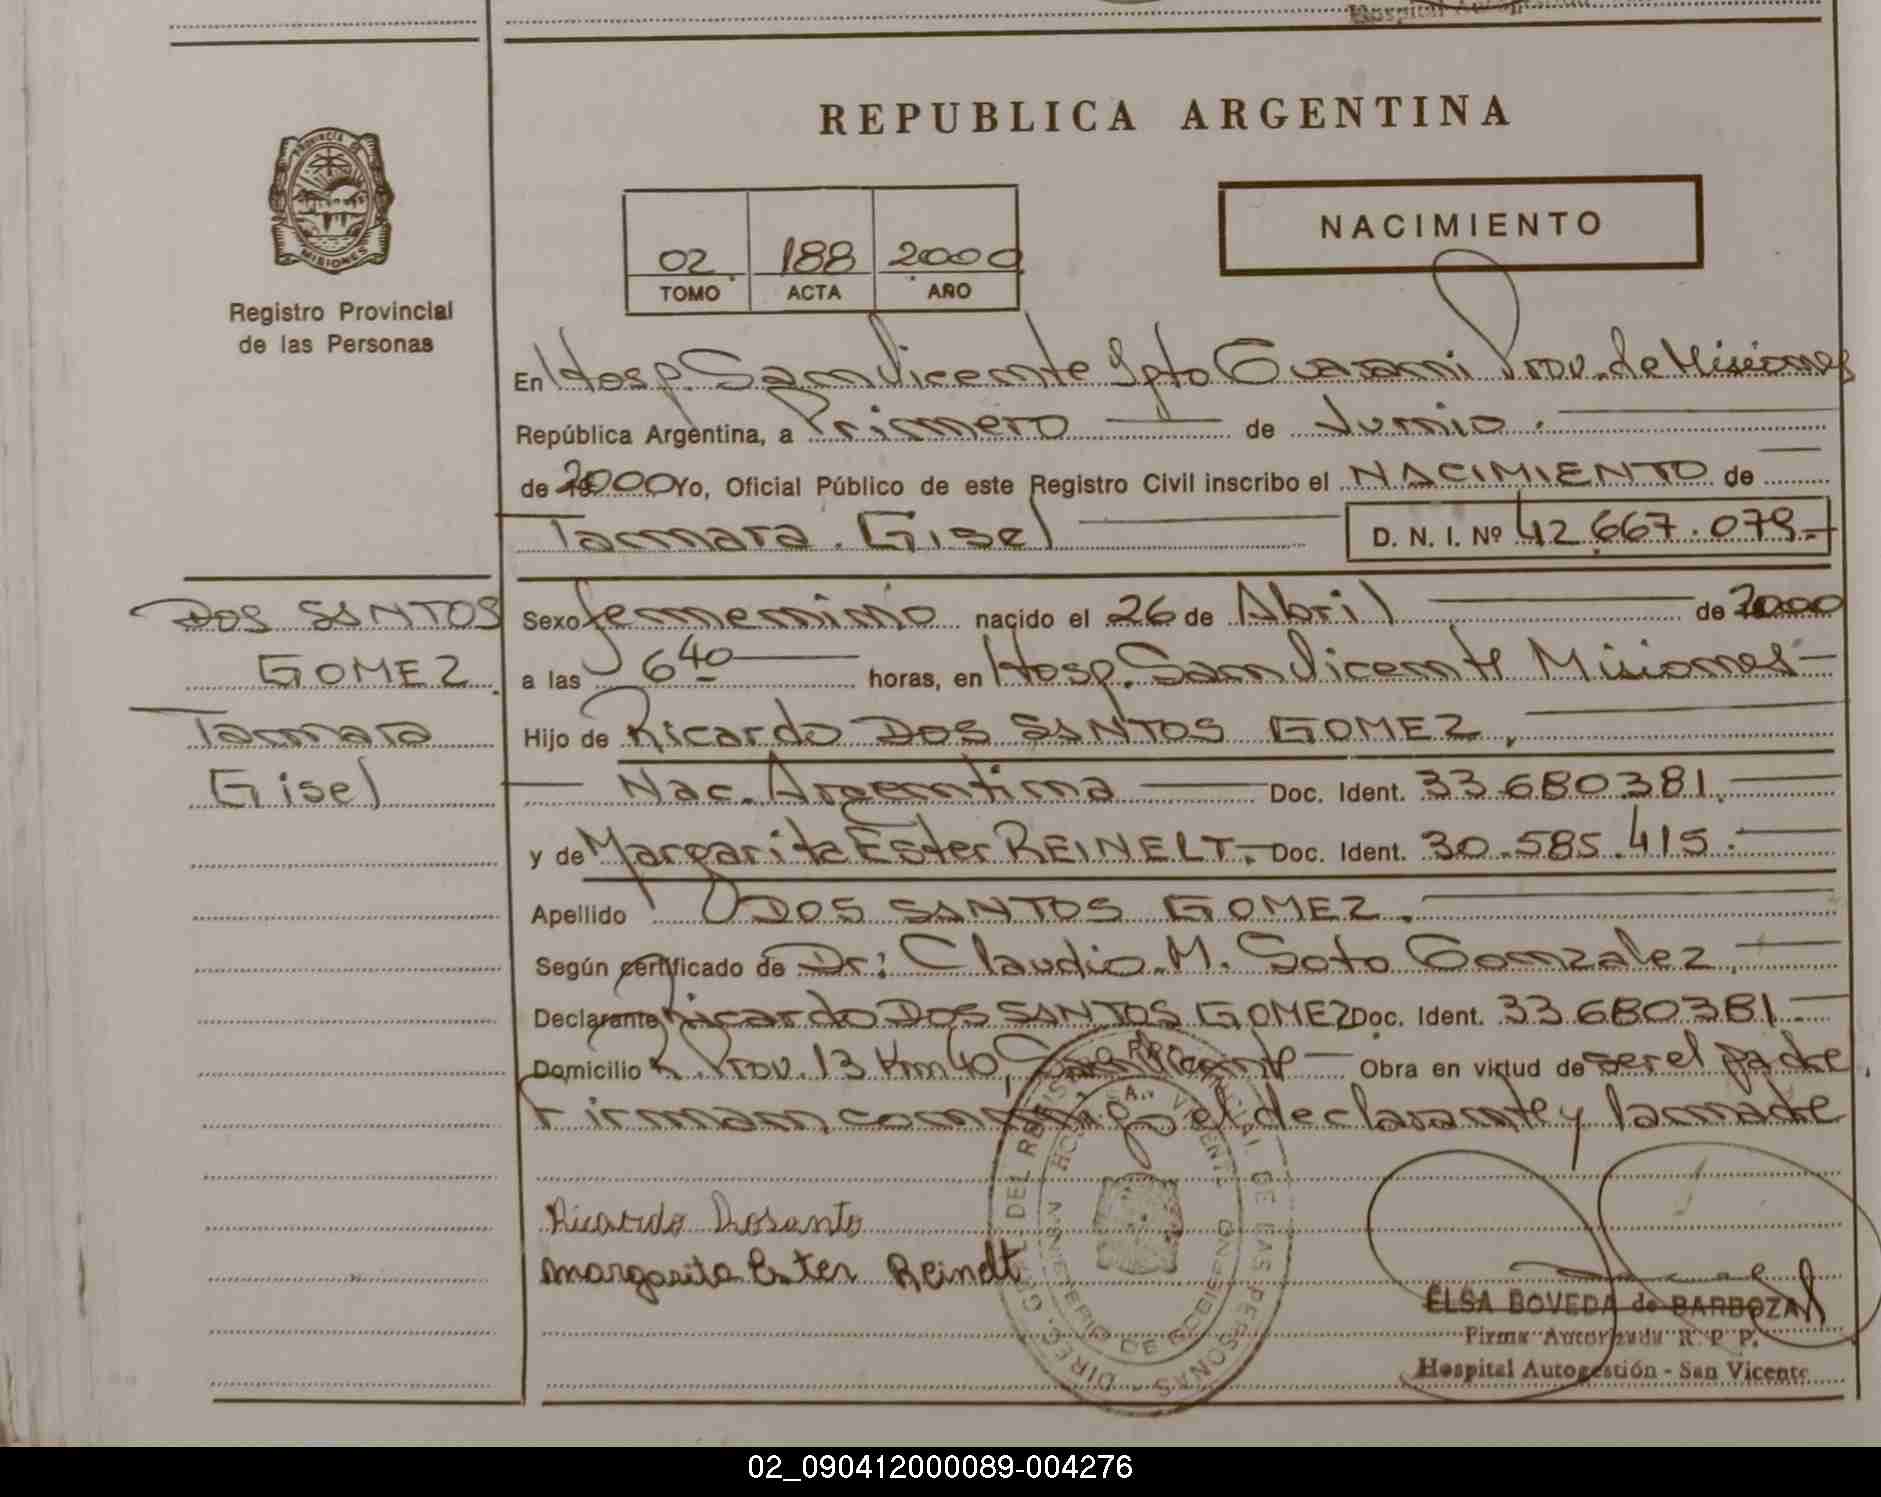 REPUBLICA ARGENTINA
PROVINCIA DE
MISIONES
Registro Provincial
de las Personas
NACIMIENTO
02 188 2000
TOMO ACTA AÑO
En Hosp. San Vicente Dpto Guarani Prov. de Misiones
República Argentina, a Primero de Junio.
de 2000 Yo, Oficial Público de este Registro Civil inscribo el NACIMIENTO de
Tamara Gisel D. N. I. Nº 42.667.079.-
DOS SANTOS
GOMEZ.
Tamara
Gisel
Sexo femenino nacido el 26 de Abril de 2000
a las 6 40 horas, en Hosp. San Vicente Misiones
Hijo de Ricardo DOS SANTOS GOMEZ.
Nac. Argentina Doc. Ident. 33.680.381.
y de Margarita Ester REINELT. Doc. Ident. 30.585.415.
Apellido DOS SANTOS GOMEZ.
Según certificado de Dr: Claudio M. Soto Gonzalez
Declarante Ricardo DOS SANTOS GOMEZ Doc. Ident. 33.680381.
Domicilio R. Prov. 13 Km 40, San Vicente Obra en virtud de ser el padre.
Firman conmigo el declarante y la madre
Ricardo Dosanto
Margarita Ester Reinelt
ELSA BOVEDA de BARBOZA
Firma Autorizada R. P. P.
Hospital Autogestión - San Vicente
DIREC. GRAL. DEL REGISTRO PROVINCIAL DE LAS PERSONAS
MINISTERIO DE GOBIERNO
02_090412000089-004276